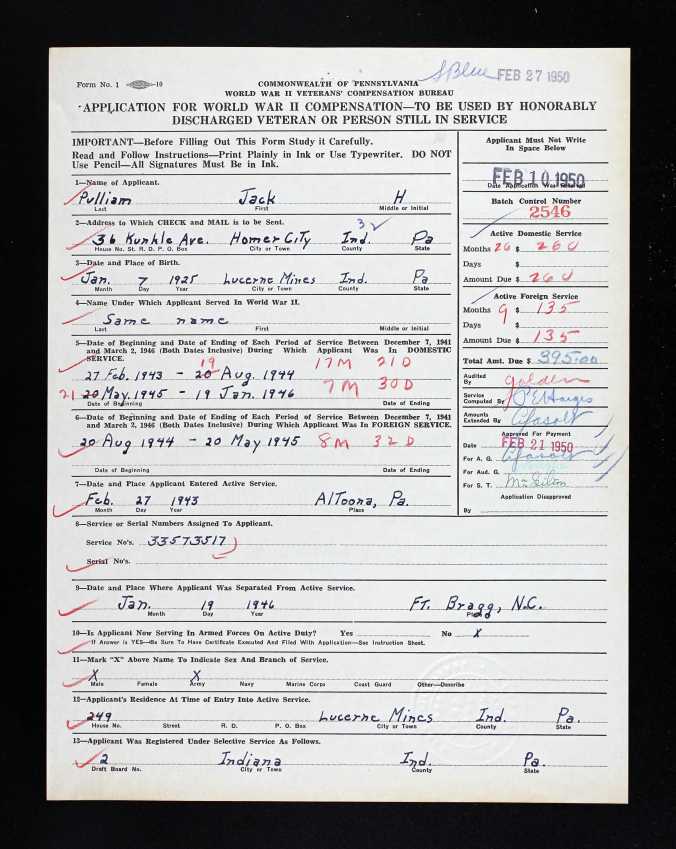 S Blue FEB 27 1950
Form No. 1 10
COMMONWEALTH OF PENNSYLVANIA
WORLD WAR II VETERANS' COMPENSATION BUREAU
APPLICATION FOR WORLD WAR II COMPENSATION—TO BE USED BY HONORABLY
DISCHARGED VETERAN OR PERSON STILL IN SERVICE
IMPORTANT—Before Filling Out This Form Study it Carefully.
Read and Follow Instructions—Print Plainly in Ink or Use Typewriter. DO NOT
Use Pencil—All Signatures Must Be in Ink.
1—Name of Applicant.
Pulliam Jack H
Last First Middle or Initial
2—Address to Which CHECK and MAIL is to be Sent.
32
36 Kunkle Ave. Homer City Ind. Pa
House No. St. R. D. P. O. Box City or Town County State
3—Date and Place of Birth.
Jan. 7 1925 Lucerne Mines Ind. Pa
Month Day Year City or Town County State
4—Name Under Which Applicant Served In World War II.
Same name
Last First Middle or Initial
5—Date of Beginning and Date of Ending of Each Period of Service Between December 7, 1941
and March 2, 1946 (Both Dates Inclusive) During Which Applicant Was In DOMESTIC
SERVICE.
19
27 Feb. 1943 - 20 Aug. 1944 17M 21D
21 20 May. 1945 - 19 Jan. 1946 7M 30D
Date of Beginning Date of Ending
6—Date of Beginning and Date of Ending of Each Period of Service Between December 7, 1941
and March 2, 1946 (Both Dates Inclusive) During Which Applicant Was In FOREIGN SERVICE.
20 Aug 1944 - 20 May 1945 8M 32D
Date of Beginning Date of Ending
7—Date and Place Applicant Entered Active Service.
Feb. 27 1943 Altoona, Pa.
Month Day Year Place
8—Service or Serial Numbers Assigned To Applicant.
Service No's. 33573517
Serial No's.
9—Date and Place Where Applicant Was Separated From Active Service.
Jan. 19 1946 Ft. Bragg, N.C.
Month Day Year Place
10—Is Applicant Now Serving In Armed Forces On Active Duty? Yes No X
If Answer is YES—Be Sure To Have Certificate Executed And Filed With Application—See Instruction Sheet.
11—Mark "X" Above Name To Indicate Sex And Branch of Service.
X X
Male Female Army Navy Marine Corps Coast Guard Other—Describe
12—Applicant's Residence At Time of Entry Into Active Service.
249 Lucerne Mines Ind. Pa.
House No. Street R. D. P. O. Box City or Town County State
13—Applicant Was Registered Under Selective Service As Follows.
2 Indiana Ind. Pa.
Draft Board No. City or Town County State
Applicant Must Not Write
In Space Below
FEB 10 1950
Date Application Was Received
Batch Control Number
2546
Active Domestic Service
Months 26 $ 260
Days $
Amount Due $ 260
Active Foreign Service
Months 9 $ 135
Days $
Amount Due $ 135
Total Amt. Due $ 395.00
Audited
By Golden
Service
Computed By
Amounts
Extended By
Approved For Payment
Date FEB 21 1950
For A. G.
For Aud. G.
For S. T.
Application Disapproved
By